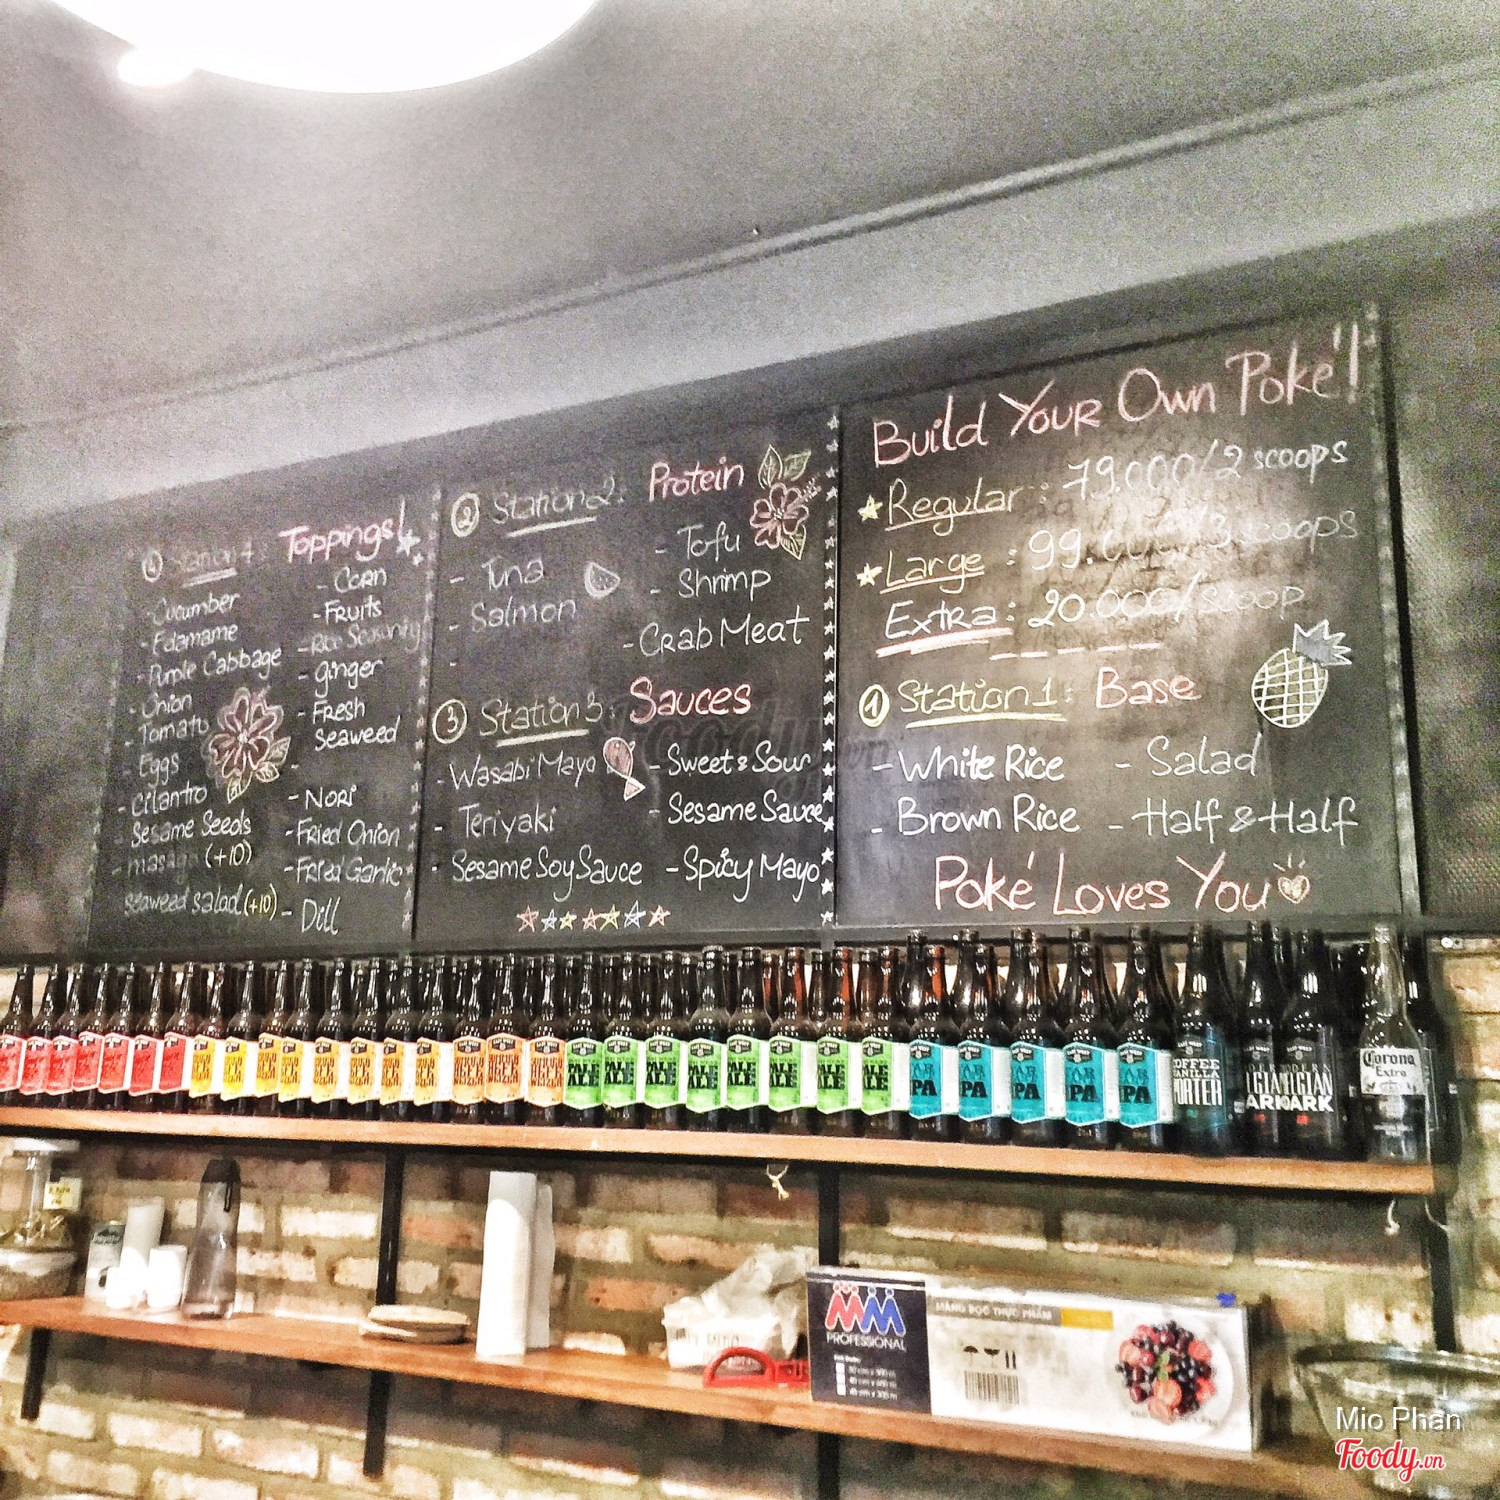 ④ Station 4: Toppings!
- Cucumber
- Edamame
- Purple Cabbage
- Onion
- Tomato
- Eggs
- Cilantro
- Sesame Seeds
- masago (+10)
seaweed salad (+10)
- Corn
- Fruits
- Rice
- ginger
- Fresh
Seaweed
-
- Nori
- Fried Onion
- Fried Garlic
- Dill
② Station 2: Protein
- Tuna
- Salmon
-
- Tofu
- Shrimp
- Crab Meat
③ Station 3: Sauces
- Wasabi Mayo
- Teriyaki
- Sesame Soy Sauce
- Sweet & Sour
- Sesame Sauce
- Spicy Mayo
Build Your Own Poké!
Regular: 79.000/2 scoops
Large: 99.000/3 scoops
Extra: 20.000/scoop
① Station 1: Base
- White Rice
- Brown Rice
- Salad
- Half & Half
Poké Loves You
PALE
ALE
PALE
ALE
PALE
ALE
PALE
ALE
PALE
ALE
PALE
ALE
PALE
ALE
PALE
ALE
PA
PA
PA
PA
PA
COFFEE
VANILLA
PORTER
Corona
Extra
MM
PROFESSIONAL
MÀNG BỌC THỰC PHẨM
Mio Phan
Foody.vn